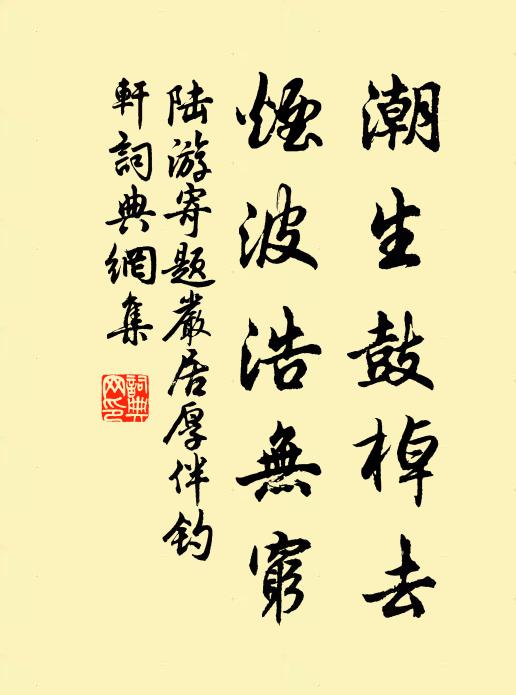 潮生鼓棹去
煙波浩無窮
陆游寄题嚴居厚伴钓
軒詞典網集
詞典
网印